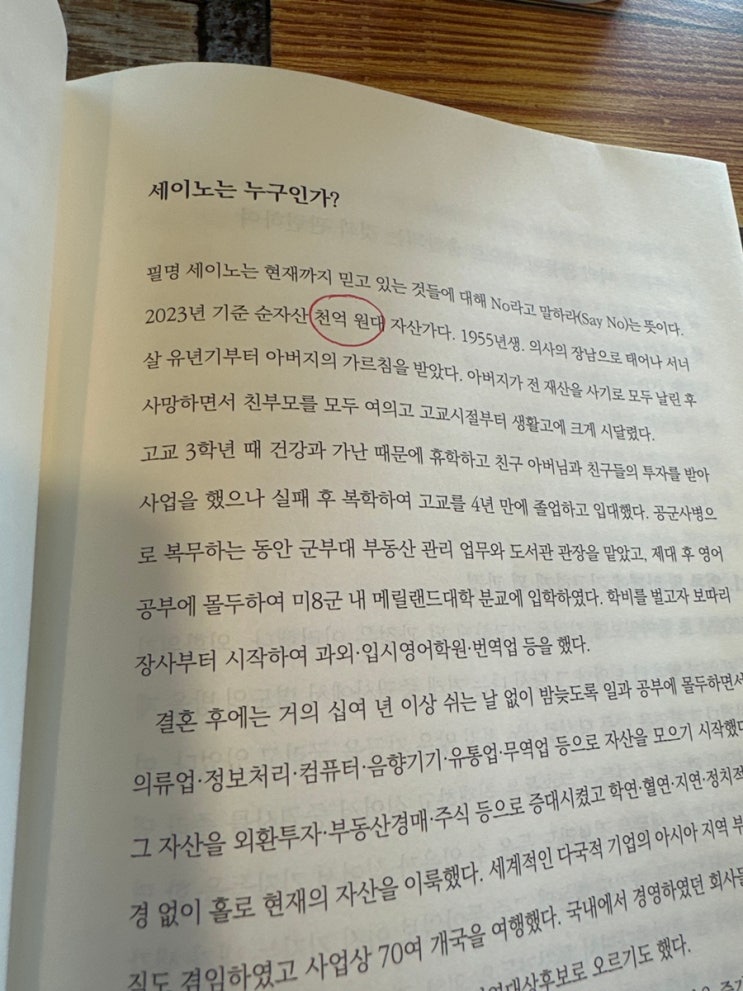 세이노는 누구인가?
필명 세이노는 현재까지 믿고 있는 것들에 대해 No라고 말하라(Say No)는 뜻이다.
2023년 기준 순자산 천억 원대 자산가다. 1955년생. 의사의 장남으로 태어나 서너
살 유년기부터 아버지의 가르침을 받았다. 아버지가 전 재산을 사기로 모두 날린 후
사망하면서 친부모를 모두 여의고 고교시절부터 생활고에 크게 시달렸다.
고교 3학년 때 건강과 가난 때문에 휴학하고 친구 아버님과 친구들의 투자를 받아
사업을 했으나 실패 후 복학하여 고교를 4년 만에 졸업하고 입대했다. 공군사병으
로 복무하는 동안 군부대 부동산 관리 업무와 도서관 관장을 맡았고, 제대 후 영어
공부에 몰두하여 미8군 내 메릴랜드대학 분교에 입학하였다. 학비를 벌고자 보따리
장사부터 시작하여 과외·입시영어학원·번역업 등을 했다.
결혼 후에는 거의 십여 년 이상 쉬는 날 없이 밤늦도록 일과 공부에 몰두하면서
의류업·정보처리·컴퓨터·음향기기·유통업·무역업 등으로 자산을 모으기 시작했다
그 자산을 외환투자·부동산경매·주식 등으로 증대시켰고 학연·혈연·지연·정치적
경 없이 홀로 현재의 자산을 이룩했다. 세계적인 다국적 기업의 아시아 지역 부
직도 겸임하였고 사업상 70여 개국을 여행했다. 국내에서 경영하였던 회사들
오르기도 했다.